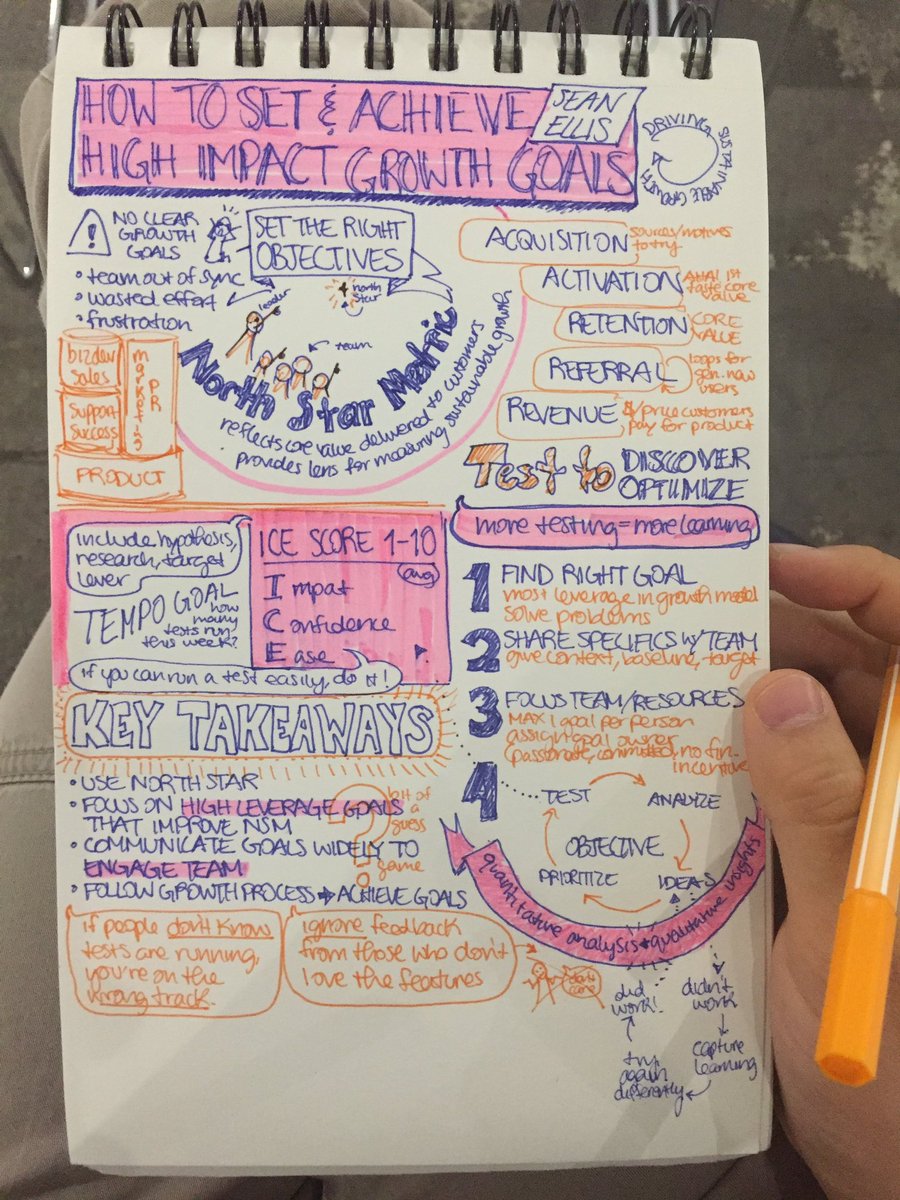 HOW TO SET & ACHIEVE
HIGH IMPACT GROWTH GOALS
SEAN
ELLIS
DRIVING
SUSTAINABLE GROWTH
NO CLEAR
GROWTH
GOALS
• team out of sync
• wasted effort
• frustration
SET THE RIGHT
OBJECTIVES
leader
north
star
team
North Star Metric
reflects core value delivered to customers
• provides lens for measuring sustainable growth
bizdev
sales
Support
Success
marketing
PR
PRODUCT
ACQUISITION
sources/motives
to try
ACTIVATION
AHA! 1st
taste core
value
RETENTION
CORE
VALUE
REFERRAL
loops for
gen. new
users
REVENUE
$/price customers
pay for product
Test to
DISCOVER
OPTIMIZE
more testing = more learning
include hypothesis,
research, target
lever
TEMPO GOAL
how
many
tests run
this week?
ICE SCORE 1-10
avg
Impact
Confidence
Ease
if you can run a test easily, do it!
1
FIND RIGHT GOAL
most leverage in growth model
solve problems
2
SHARE SPECIFICS w/TEAM
give context, baseline, target
3
FOCUS TEAM/RESOURCES
MAX 1 goal per person
assign goal owner
(passionate, committed, no fin.
incentive
4
TEST
ANALYZE
OBJECTIVE
PRIORITIZE
IDEAS
quantitative analysis + qualitative insights
did
work!
didn't
work
capture
learning
try
again
differently
KEY TAKEAWAYS
• USE NORTH STAR
• FOCUS ON HIGH LEVERAGE GOALS
THAT IMPROVE NSM
• COMMUNICATE GOALS WIDELY TO
ENGAGE TEAM
• FOLLOW GROWTH PROCESS → ACHIEVE GOALS
?
bit of
a
guess
game
if people don't know
tests are running,
you're on the
wrong track.
ignore feedback
from those who don't
love the features
don't
care